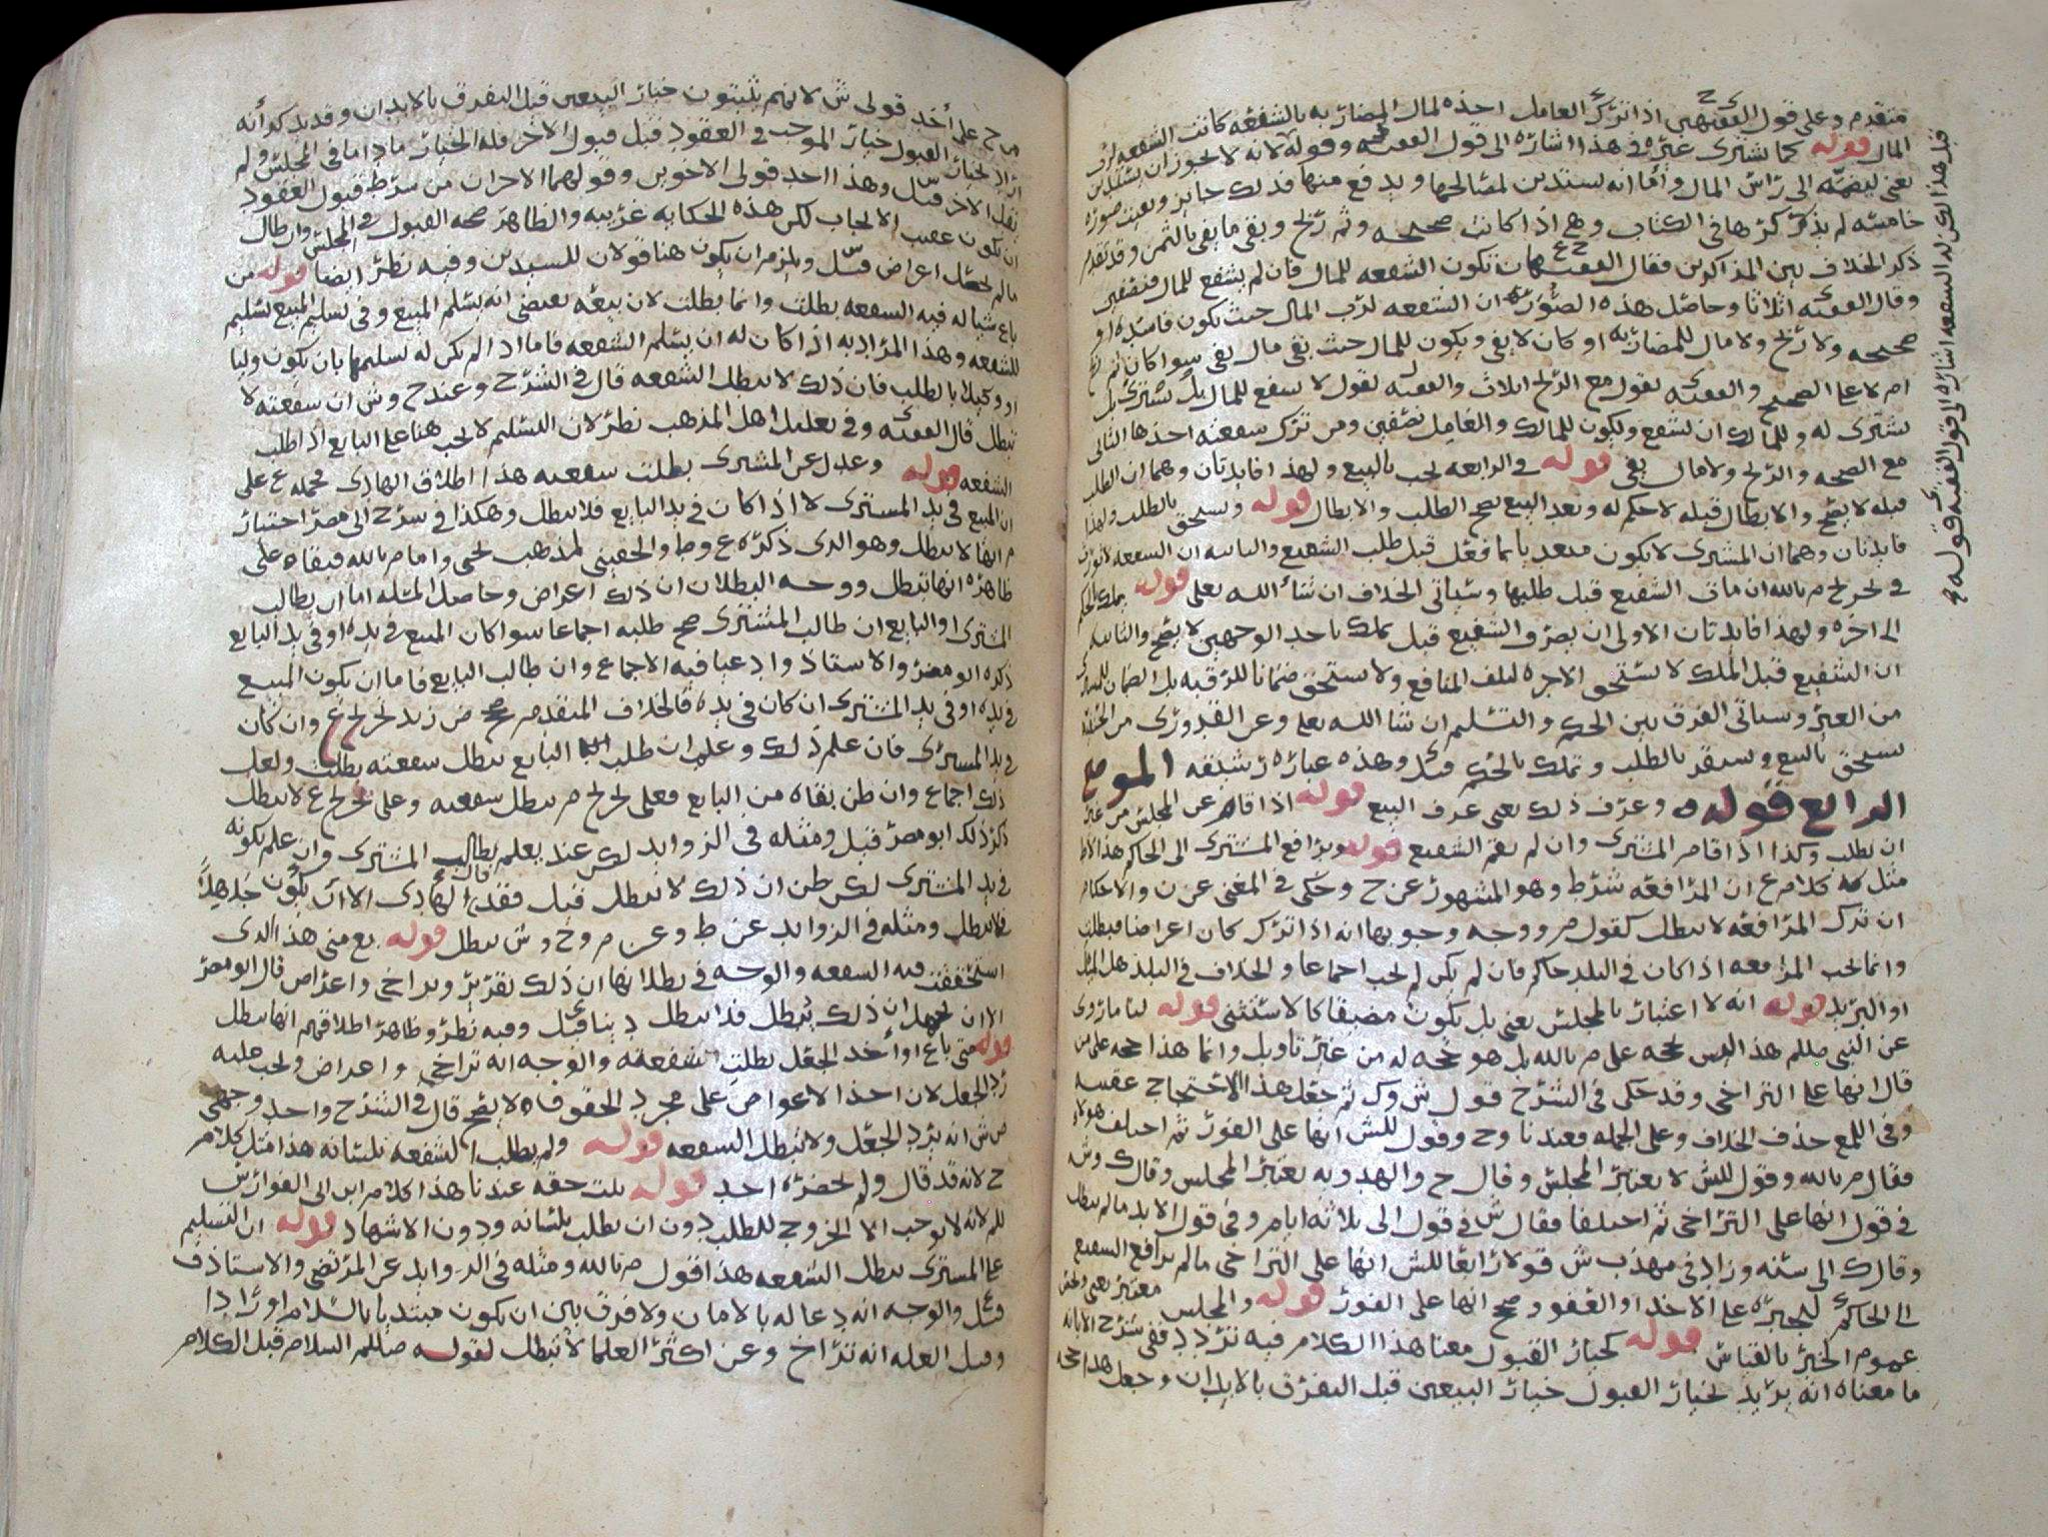 متقدم وعلى قول الفقيه ى اذا ترك العامل اخذه لمال المضاربه بالشفعه كانت الشفعه لرب
المال قوله كما يشترى غيره في هذا اشاره الى قول الفقيه وقوله لانه لا يجوز ان يستدين
يعني ليضمه الى راس المال واما انه يستدين لمصالحها ويدفع منها فذلك جايز وبقيت صوره
خامسه لم يذكر ذكرها في الكتاب وهي اذا كانت صحيحه وثم ربح وبقي ما يفي بالثمن وقد تقدم
ذكر الخلاف بين المذاكرين فقال الفقيهان تكون الشفعه للمال فان لم يشفع للمال فنصفين
وقال الفقيه اثلاثا وحاصل هذه الصوره ان الشفعه لرب المال حيث تكون فاسده او
صحيحه ولا ربح ولا مال للمضاربه او كان لا يفي ويكون للمال حيث بقي مال يفي سوا كان ثم ربح
ام لا على الصحيح والفقيه يقول مع الربح اثلاث والفقيه يقول لا يشفع للمال بل يشترى بل
يشترى له وللمالك ان يشفع ويكون للمالك والعامل نصفين ومن ترك شفعته اخذها الثاني
مع الصحه والربح ولا مال يفي قوله في الرابعه يجب بالبيع ولهذا فايدتان وهما ان الطلب
قبله لا يصح والابطال قبله لا حكم له وبعد البيع يصح الطلب والابطال قوله ويستحق بالطلب ولهذا
فايدتان وهما ان المشترى لا يكون متعديا بما فعل قبل طلب الشفيع والثانيه ان الشفعه لا تورث
في تخريج م بالله ان مات الشفيع قبل طلبها وسياتي الخلاف ان شاء الله تعالى قوله يملك بالحكم
الى اخره ولهذا فايدتان الاولى ان تصرف الشفيع قبل يملك باحد الوجهين لا يصح والثانيه
ان الشفيع قبل الملك لا يستحق الاجره لتلف المنافع ولا يستحق ضمانا للرقبه بل الضمان للمشترى
من الغير وسياتي الفرق بين الحكم والتسليم ان شا الله تعالى وعن القدورى من الحنفيه
يستحق بالبيع ويستقر بالطلب وتملك بالحكم قيل وهذه عباره رشيقه الموضع
الرابع قوله وعرف ذلك يعني عرف البيع قوله اذا قام عن المجلس من غير
ان يطلب وكذا اذا قام المشترى وان لم يقم الشفيع قوله ويرافع المشترى الى الحاكم هذا الاطلاق
مثل كلام ع ان المرافعه شرط وهو المشهور عن ح وحكى في المغني عن ن والاحكام
ان ترك المرافعه لا يبطل كقول م ووجه وجوبها انه اذا ترك كان اعراضا فبطلت
وانما يجب المرافعه اذا كان في البلد حاكم فان لم يكن لم يجب اجماعا والخلاف في البلد هل الميل
او البريد قوله انه لا اعتبار بالمجلس يعني بل يكون مضيقا كالاستثنى قوله لنا ما روى
عن النبي صللم هذا ليس بحجه على م بالله بل هو حجه له من غير تاويل وانما هذا حجه على من
قال انها على التراخي وقد حكى في الشرح قول ش وك ثم جعل هذا الاحتجاج عقيبه
وفي اللمع حذف الخلاف وعلى الجمله فعندنا وح وقول للش انها على الفور ثم اختلف هولاء
فقال م بالله وقول للش لا يعتبر المجلس وقال ح والهدويه يعتبر المجلس وقال ك وش
في قول انها على التراخي ثم اختلفا فقال ش في قول الى ثلاثه ايام وفي قول الابد مالم يبطل
وقال ك الى سنه وزاد في مهذب ش قولا رابعا للش انها على التراخي مالم يرافع الشفيع
الى الحاكم ليجبره على الاخذ او العفو وصح انها على الفور قوله والمجلس معتبر يعني ويخص
عموم الخبر بالقياس قوله كخيار القبول معنا هذا الكلام فيه تردد ففي شرح الابانه
ما معناه انه يريد بخيار القبول خيار البيعين قبل التفرق بالابدان وجعل هذا حجه
قبل هذا اى رد الشفعه اشاره الى قول الفقيه ى قوله
م ح على أحد قولى ش لانهم يثبتون خيار البيعين قبل التفرق بالابدان وقد يذكر انه
القبول خيار الموجب في العقود قبل قبول الاخر فله الخيار ما داما في المجلس ولم
يقبل الاخر قيل وهذا احد قولى الاخوين وقولهما الاخر ان من شرط قبول العقود
ان يكون عقيب الايجاب لكن هذه الحكايه غريبه والظاهر صحه القبول في المجلس وان طال
مالم يحصل اعراض قيل ويلزم ان يكون هنا قولان للسيدين وفيه نظر ايضا قوله من
باع شيا له فيه الشفعه بطلت وانما بطلت لان بيعه يقتضي انه يسلم المبيع وفي تسليم المبيع تسليم
للشفعه وهذا المراد به اذا كان له ان يسلم الشفعه فاما اذا لم يكن له تسليمها بان يكون وليا
او وكيلا بالطلب فان ذلك لا يبطل الشفعه قال في الشرح وعند ح وش ان شفعته لا
تبطل قال الفقيه ى وفي تعليل اهل المذهب نظر لان التسليم لا يجب هنا على البايع اذا طلب
الشفعه قوله وعدل عن المشترى بطلت شفعته هذا اطلاق الهادى فحمله ع على
ان المبيع في يد المشترى لا اذا كان في يد البايع فلا يبطل وهكذا في شرح ابى مضر اختيار
م انها لا تبطل وهو الذى ذكره ع وط والحقيني لمذهب يحيى واما م بالله فبقاه على
ظاهره انها تبطل ووجه البطلان ان ذلك اعراض وحاصل المسله اما ان يطالب
المشترى او البايع ان طالب المشترى صح طلبه اجماعا سوا كان المبيع في يده او في يد البايع
ذكره ابو مضر والاستاذ وادعيا فيه الاجماع وان طالب البايع فاما ان يكون المبيع
في يده او في يد المشترى ان كان في يده فالخلاف المتقدم صح ض زيد تخريج ع وان كان
في يد المشترى فان علم ذلك وعلم ان طلب البايع يبطل شفعته بطلت ولعل
ذلك اجماع وان ظن بقاه مع البايع فعلى تخريج م يبطل شفعته وعلى تخريج ع لا يبطل
ذكر ذلك ابو مضر قيل ومثله في الزوايد لكن عند يعلم يطالب المشترى وان علم بكونه
في يد المشترى لكن ظن ان ذلك لا يبطل قيل فقد قال الهادى الا ان يكون جاهلا
فلا يبطل ومثله في الزوايد عن ط وعن م وح وش يبطل قوله بع مني هذا الذى
استحققت فيه الشفعه والوجه في بطلانها ان ذلك تقرير وتراخى واعراض قال ابو مضر
الا ان يجهل ان ذلك يبطل فلا يبطل دينا قيل وفيه نظر وظاهر اطلاقهم انها تبطل
قوله متى باع او أخذ الجعل بطلت شفعته والوجه انه تراخي واعراض ويجب عليه
رد الجعل لان اخذ الاعواض على مجرد الحقوق لا يصح قال في الشرح واحد وجهى
ص ش انه يرد الجعل ولا تبطل الشفعه قوله ولم يطلب الشفعه بلسانه هذا مثل كلام
ح لانه قد قال ولم يحضره احد قوله ثبت حقه عندنا هذا كلام ابن ابى الفوارس
للم لانه لا يوجب الا الخروج للطلب دون ان يطلب بلسانه ودون الاشهاد قوله ان التسليم
على المشترى يبطل الشفعه هذا قول م بالله ومثله في الزوايد عن المرتضى والاستاذ ف
قيل والوجه انه دعا له بالامان ولا فرق بين ان يكون مبتديا بالسلام او رادا
وقيل العله انه تراخ وعن اكثر العلما لا تبطل لقوله صللم السلام قبل الكلام